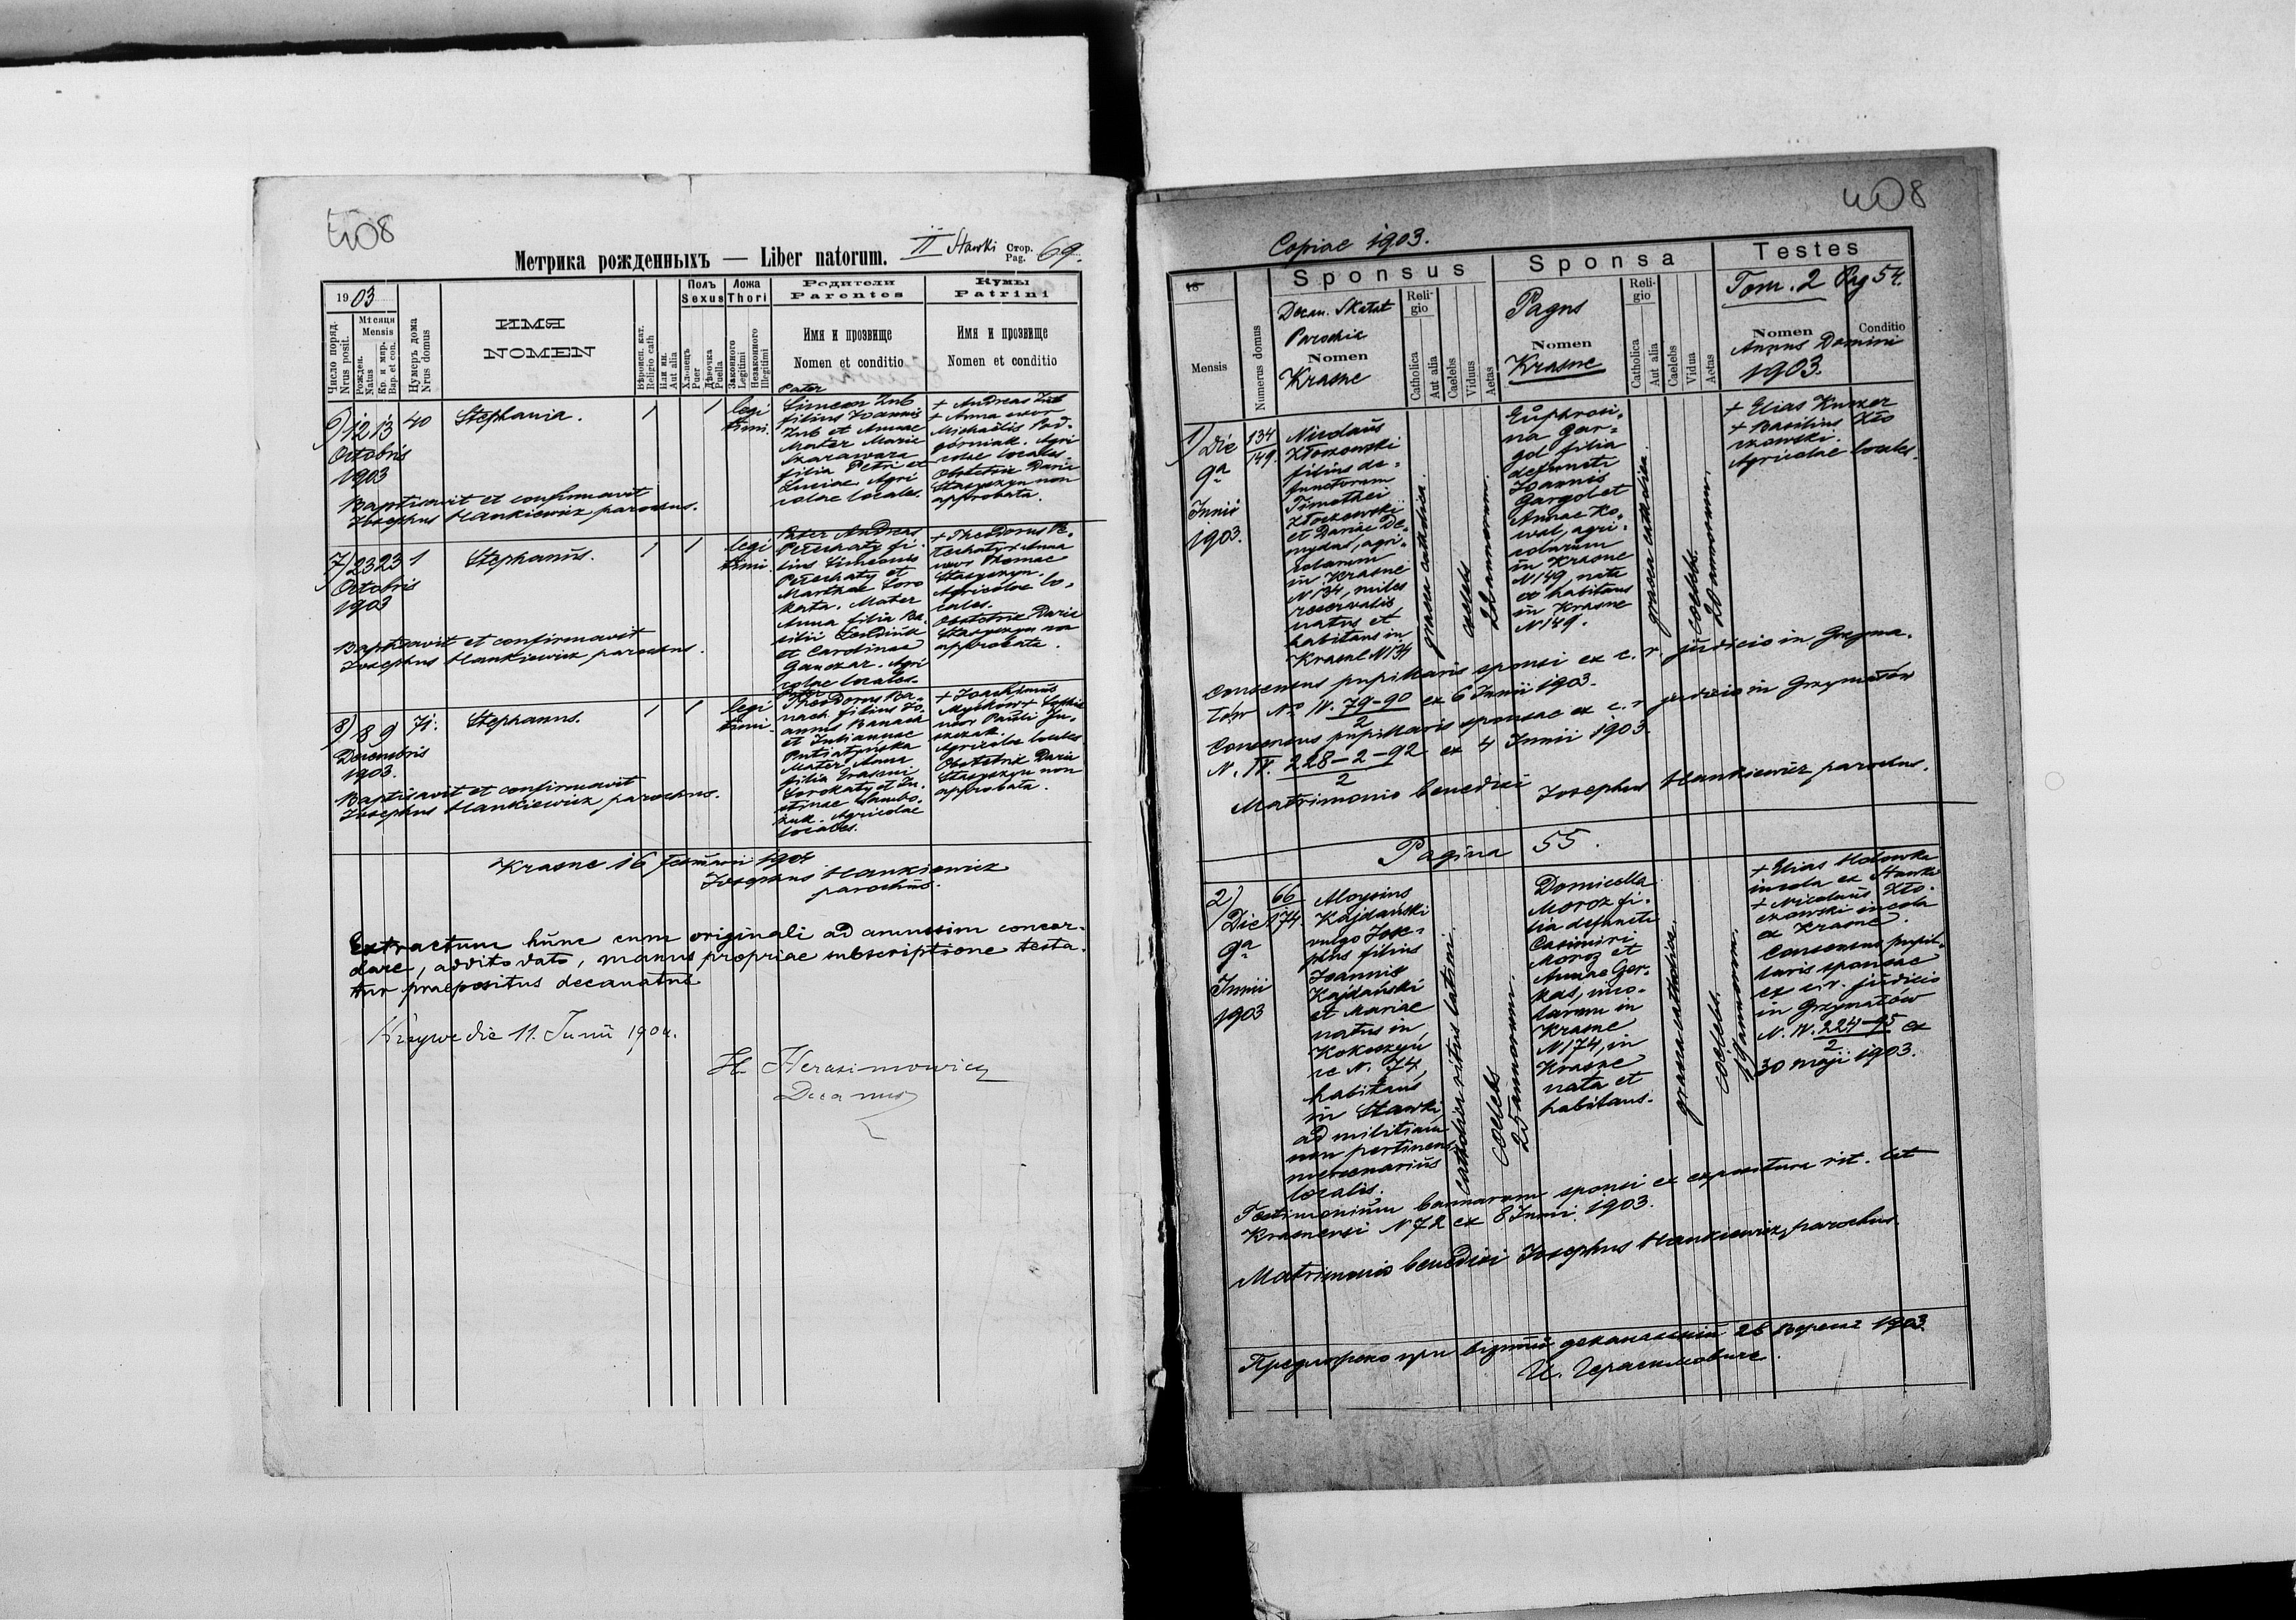 408
Метрика рожденныхъ — Liber natorum. II Stawki Стор. Pag. 69.
1903
Число поряд.
Nrus posit.
Мѣсяця
Mensis
Рожден.
Natus
Кр. и мир.
Bap. et con.
Нумеръ дома
Nrus domus
ИМЯ
NOMEN
Вѣроисп. кат.
Religio cath
Или ин.
Aut alia
Полъ
Sexus
Хлопецъ
Puer
Дѣвочка
Puella
Ложа
Thori
Законного
Legitimi
Незаконного
Illegitimi
Родители
Parentes
Имя и прозвище
Nomen et conditio
Кумы
Patrini
Имя и прозвище
Nomen et conditio
6) 12 13
Octobris
1903
40
Stephania.
1
1
legi
timi.
Pater
Simeon Zub
filius Joannis
Zub et Annae
Mater Maria
Szarawara
filia Petri et
Luciae. Agri
colae locales.
+ Andreas Zub
+ Anna uxor
Michaëlis Pod-
górniak. Agri
colae locales.
Obstetrix Daria
non
approbata.
Baptisavit et confirmavit
Josephus Hankiewicz parochus.
7) 23 23
Octobris
1903
1
Stephanus.
1
1
legi
timi.
Pater Andreas
Petechaty fi-
lius Simeonis
Petechaty et
Marthae Soro
kata. Mater
Anna filia Ba-
silii
et Carolinae
Ganczar. Agri
colae locales.
+ Theodorus Pe-
techaty + Anna
uxor Thomae
Agricolae lo-
cales.
Obstetrix Daria
non
approbata.
Baptisavit et confirmavit
Josephus Hankiewicz parochus.
8) 8 9
Decembris
1903.
71.
Stephanus.
1
1
legi
timi.
Pater
Theodorus Ba-
nach filius Jo-
annis Banach
et Juliannae
Putiatynska
Mater Anna
filia
Sorokaty et Ju-
stinae
Agricolae
locales.
+ Joachimus
uxor Pauli
Agricolae locales.
Obstetrix Daria
non
approbata.
Baptisavit et confirmavit
Josephus Hankiewicz parochus.
Krasne 16 Februarii 1904
Josephus Hankiewicz
parochus.
Extractum hunc cum originali ad amussim concor-
dare, addito dato, manus propriae subscriptione testa-
tur praepositus decanatus
Krzywe die 11. Junii 1904.
H. Herasimowicz
Decanus
408
Copiae 1903.
18
Mensis
Numerus domus
Sponsus
Decan. Skałat
Parochia
Nomen
Krasne
Religio
Catholica
Aut alia
Caelebs
Viduus
Aetas
Sponsa
Pagus
Nomen
Krasne
Religio
Catholica
Aut alia
Caelebs
Vidua
Aetas
Testes
Tom. 2 Pag 54.
Nomen
Conditio
Annus Domini
1903.
1) Die
9a
Junii
1903.
134
149.
Nicolaus
Złoczowski
filius de-
functorum
Timothei
Złoczowski
et Dariae De-
mydas, agri-
colarum
in Krasne
N 134, miles
reservalis
natus et
habitans in
Krasne N 134
graeco catholica.
caelebs
22 annorum.
Euphrosi-
na Gar-
gol filia
defuncti
Joannis
Gargol et
Annae Ko-
wal, agri-
colarum
in Krasne
N 149, nata
et habitans
in Krasne
N 149.
graeco catholica.
coelebs.
20 annorum.
+ Elias Kuszer
+ Basilius Zło
czowski.
Agricolae locales.
Consensus pupillaris sponsi ex c. r. judicio in Grzyma-
łów No IV. 79-90/2 ex 6 Junii 1903.
Consensus pupillaris sponsae ex c. r judicio in Grzymałów
N. IV. 228-2-92/2 ex 4 Junii 1903.
Matrimonio benedixi Josephus Hankiewicz parochus.
Pagina 55.
2)
Die
9a
Junii
1903
66
174
Aloysius
Kajdański
vulgo Jose-
phus filius
Joannis
Kajdański
et Mariae
natus in
Kokoszyń
ce N. 74,
habitans
in Stawki
ad militiam
non pertinens
mercenarius
localis.
Catholica ritus latini.
coelebs
25 annorum.
Domicella
Moroz fi-
lia defuncti
Casimiri
Moroz et
Annae Ger-
kas, inco-
larum in
Krasne
N 174, in
Krasne
nata et
habitans.
graeco catholica.
coelebs.
19 annorum.
+ Elias Hołowka
incola ex Stawki
+ Nicolaus Zło-
czowski incola
ex Krasne.
Consensus pupil-
laris sponsae
ex c. r. judicio
in Grzymałów
N. IV. 224-95/2 ex
30 maji 1903.
Testimonium bannorum sponsi ex expositura rit. lat
Krasnensi N 72 ex 8 Junii 1903.
Matrimonio benedixi Josephus Hankiewicz, parochus.
Предложено при візитації деканальній 26 вересня 1903.
И. Герасимовичъ.